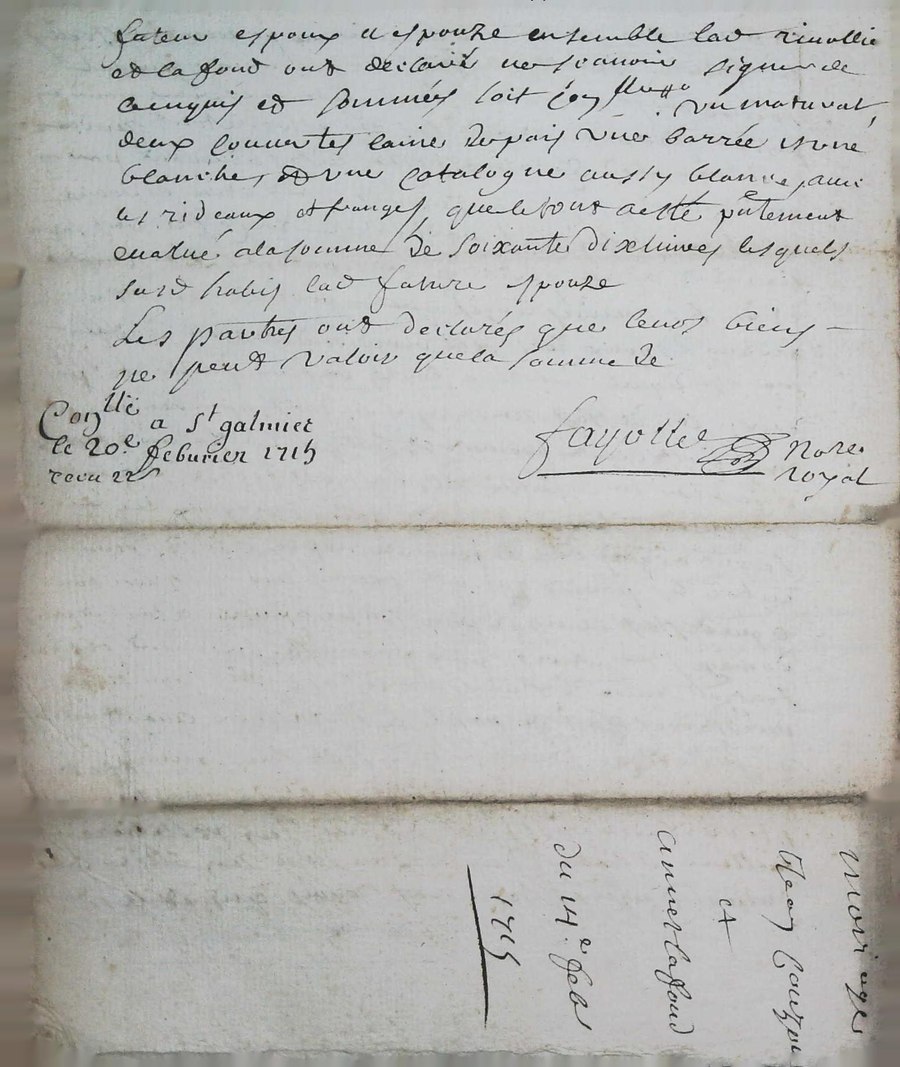 futeur espoux et espouze ensemble lad rivollie
et lafond ont déclaré ne scavoir signer de
ce enquis et sommés soit un maturat
deux couvertes laine de pais une barrée et une
blanche, et une catalogne aussy blanche, avec
les rideaux et franges, que le tout a esté pntement
evalué a la somme de soixante dix livres lesquels
sus habis lad future espouze
Les parties ont declarés que leurs biens
ne peut valoir que la somme de
Conllé a St galmier
le 20e feburier 1715
receu 22s
fayolle Nore
royal
mariage
et
annet lafond
du 14e feb
1715